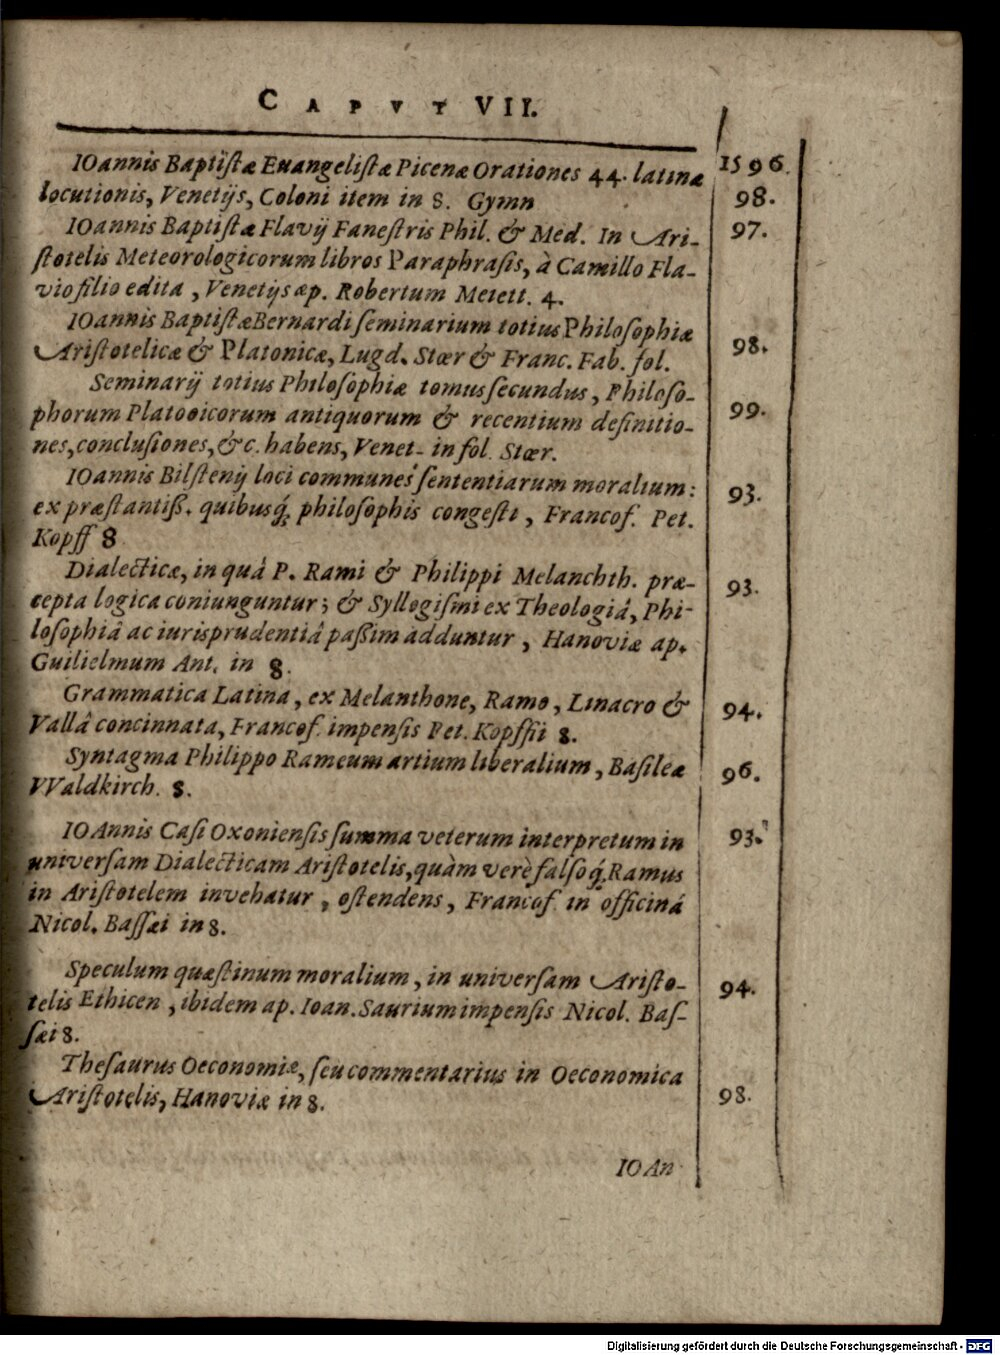 CAPVT VII.
IOannis Baptistæ Euangelistæ Picenæ Orationes 44. latinæ 1596.
locutionis, Venetijs, Coloni item in 8. Gymn 98.
IOannis Baptistæ Flavij Fanestris Phil. & Med. In Ari- 97.
stotelis Meteorologicorum libros Paraphrasis, à Camillo Fla-
vio filio edita, Venetijs ap. Robertum Metett. 4.
IOannis Baptistæ Bernardi seminarium totius Philosophiæ
Aristotelicæ & Platonicæ, Lugd. Stœr & Franc. Fab. fol. 98.
Seminarij totius Philosophiæ tomus secundus, Philoso-
phorum Platooicorum antiquorum & recentium definitio- 99.
nes, conclusiones, &c. habens, Venet. in fol. Stœr.
IOannis Bilstenij loci communes sententiarum moralium: 93.
ex præstantiß. quibusq́; philosophis congesti, Francof. Pet.
Kopff 8
Dialecticæ, in quâ P. Rami & Philippi Melanchth. præ- 93.
cepta logica coniunguntur; & Syllogismi ex Theologiâ, Phi-
losophiâ ac iurisprudentiâ paßim adduntur, Hanoviæ ap.
Guilielmum Ant. in 8.
Grammatica Latina, ex Melanthone, Ramo, Linacro & 94.
Vallâ concinnata, Francof. impensis Pet. Kopffii 8.
Syntagma Philippo Rameum artium liberalium, Basileæ 96.
VValdkirch. 8.
IOAnnis Casi Oxoniensis summa veterum interpretum in 93.
universam Dialecticam Aristotelis, quàm verè falsoq́; Ramus
in Aristotelem invehatur, ostendens, Francof. in officinâ
Nicol. Bassæi in 8.
Speculum quæstinum moralium, in universam Aristo- 94.
telis Ethicen, ibidem ap. Ioan. Saurium impensis Nicol. Bas-
sæi 8.
Thesaurus Oeconomiæ, seu commentarius in Oeconomica
Aristotelis, Hanoviæ in 8. 98.
IOAn
Digitalisierung gefördert durch die Deutsche Forschungsgemeinschaft - DFG